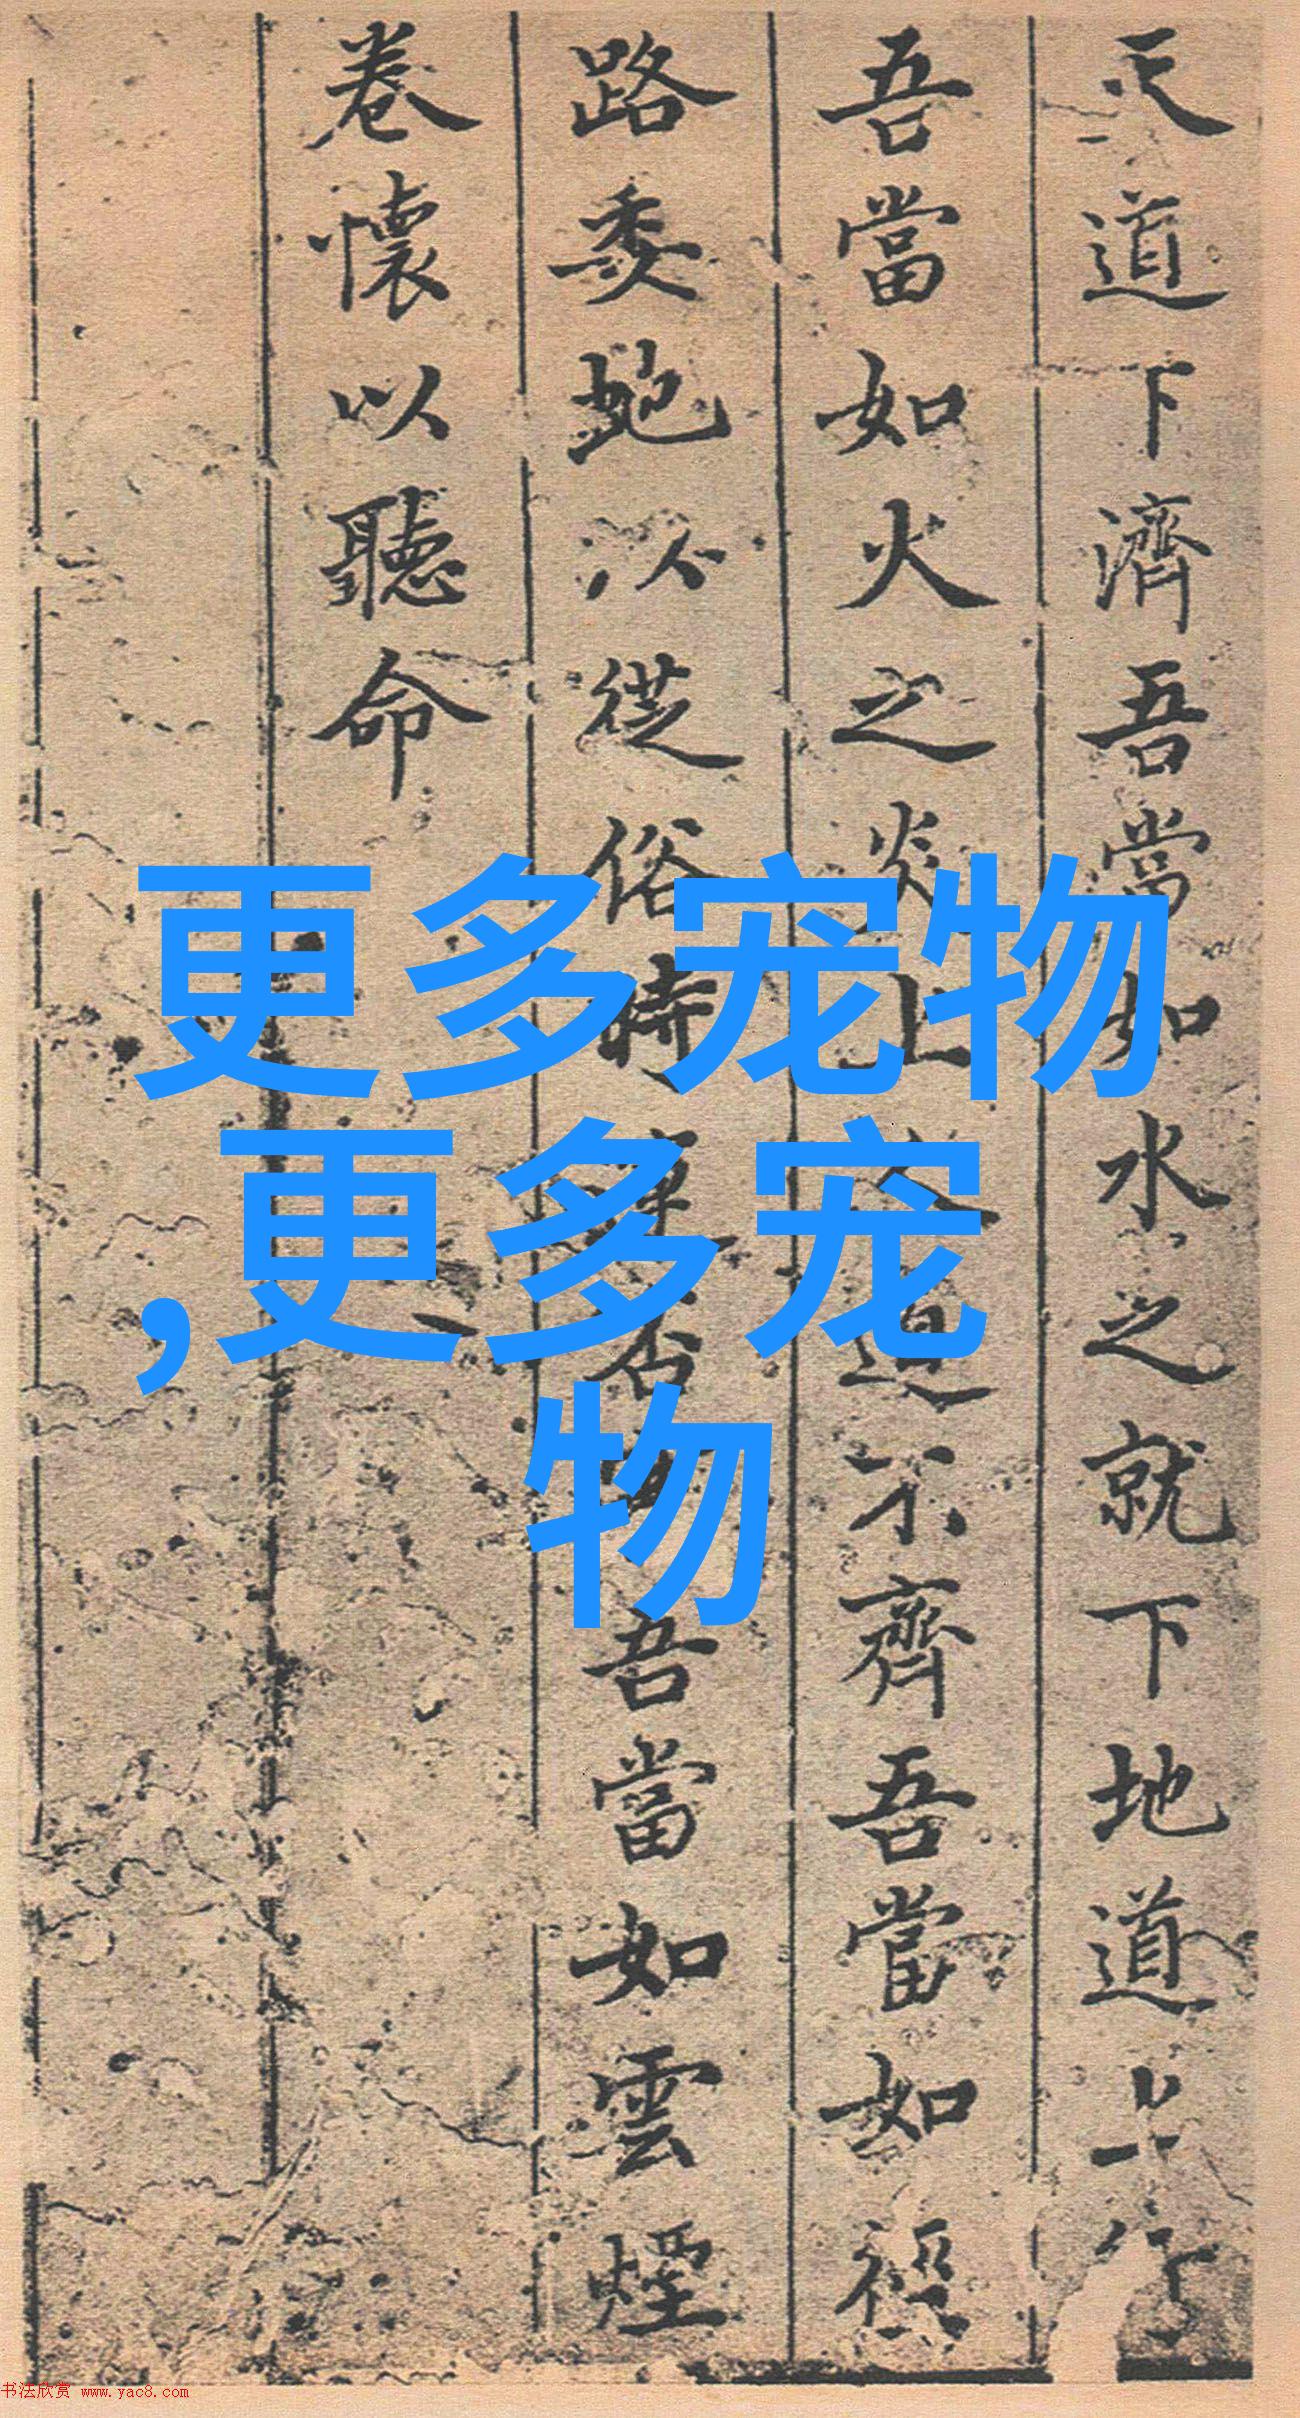 天道下濟吾當如水之就下地道上行
吾當如火之炎上人道不齊吾當如徑
路委蛇以從俗時運否吾當如雲煙
卷懷以聽命
更多宠物
,更多宠
物
书法欣赏 www.yac8.com